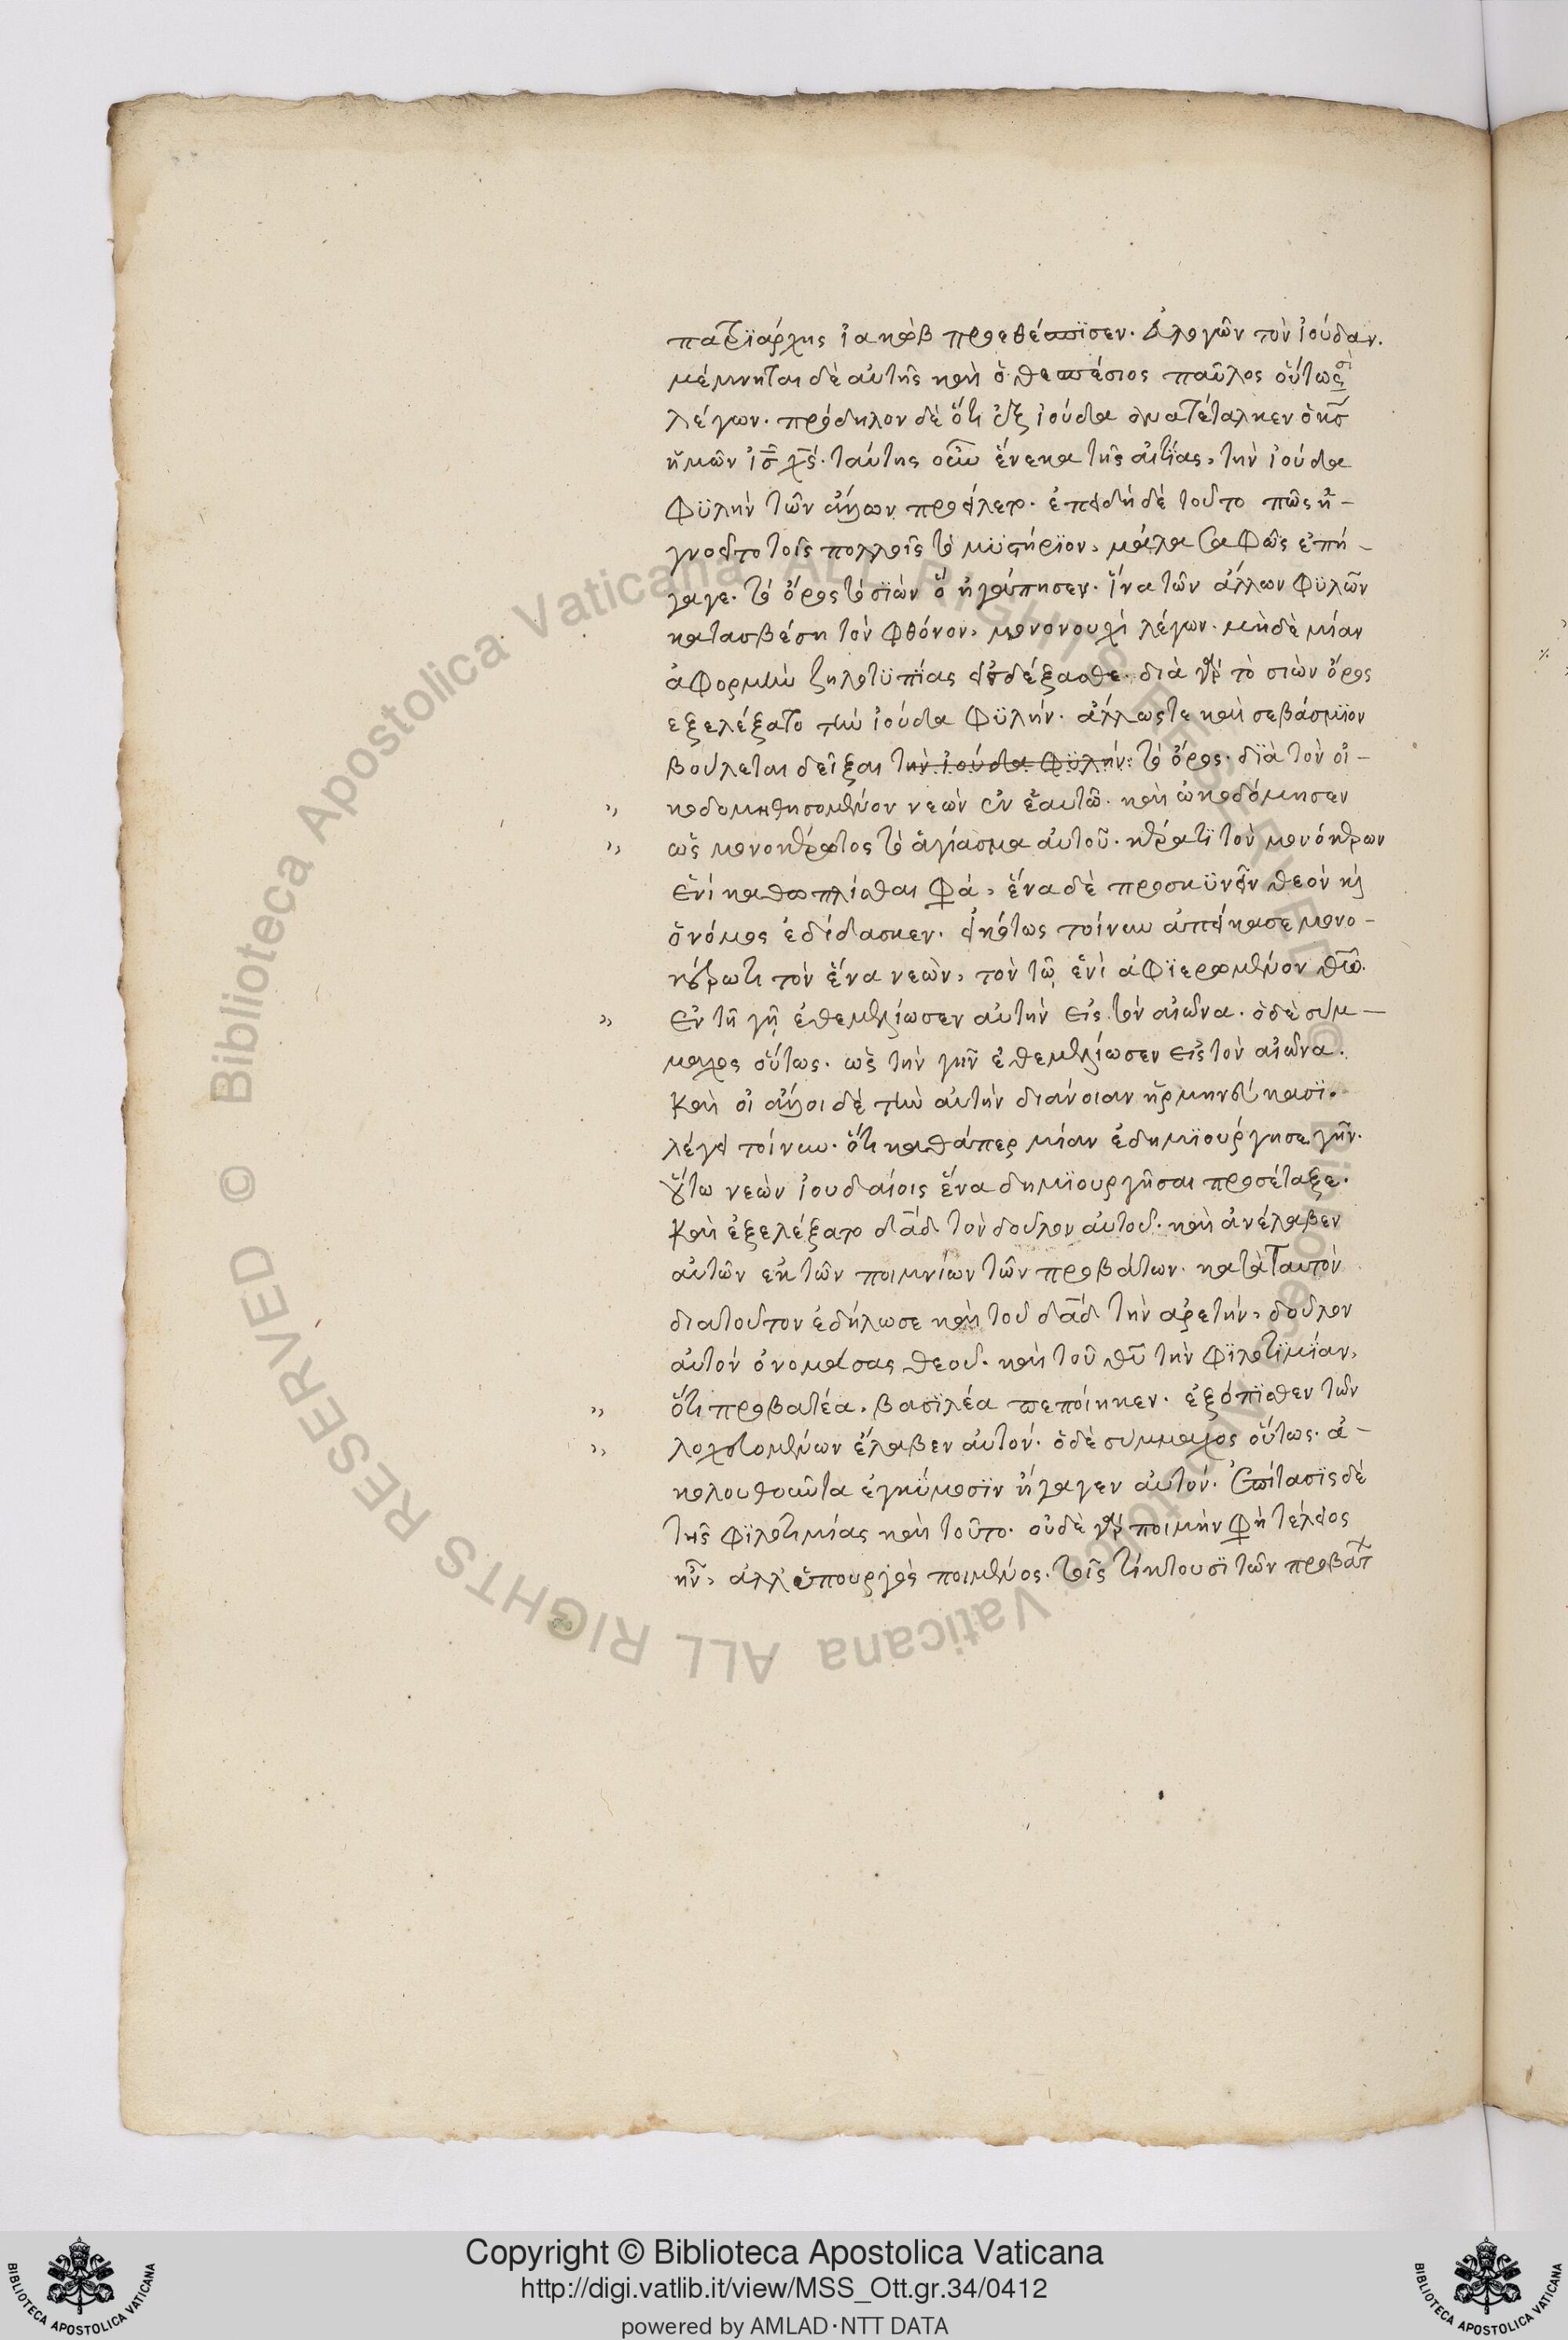 πατριάρχης ἰακὼβ προεθέσπισεν. εὐλογῶν τὸν ἰούδαν.
μέμνηται δὲ αὐτῆς καὶ ὁ θεσπέσιος παῦλος οὕτωσὶ
λέγων. πρόδηλον δὲ ὅτι ἐξ ἰούδα ἀνατέταλκεν ὁ κσ̄
ἡμῶν ἰσ̄ χς̄. ταύτης οὖν ἕνεκα τῆς αἰτίας, τὴν ἰούδα
φϋλὴν τῶν ἄλλων προείλετο. ἐπειδὴ δὲ τοῦτο πῶς ἠ-
γνοεῖτο τοῖς πολλοῖς τὸ μϋστήρϊον, μάλα σαφῶς ἐπή-
γαγε. τὸ ὄρος τὸ σϊὼν ὃ ἠγάπησεν. ἵνα τῶν ἄλλων φϋλῶν
κατασβέση τὸν φθόνον, μονονουχὶ λέγων. μηδὲ μίαν
ἀφορμὴν ζηλοτϋπίας εἰσδέξασθε. διὰ γὰρ τὸ σιὼν ὄρος
εξελέξατο τὴν ἰούδα φϋλήν. ἄλλωστε καὶ σεβάσμϊον
βούλεται δεῖξαι τὴν ἰούδα φϋλήν: τὸ ὄρος. δϊὰ τὸν οἰ-
,, κοδομηθησομενον νεὼν ἐν ἑαυτῶ. καὶ ὠκοδόμησεν
,, ὡς μονοκέρωτος τὸ ἁγίασμα αὐτοῦ. κέρατϊ τὸν μονόκερων
ἑνὶ καθωπλίσθαι φασί, ἕνα δὲ προσκϋνεῖν θεὸν καὶ
ὁ νόμος ἐδίδασκεν. εἰκότως τοίνυν ἀπείκασε μονο-
κέρωτι τὸν ἕνα νεὼν, τὸν τῷ ἑνὶ ἀφϊερωμένον θῶ̄.
,, ἐν τῆ γῇ ἐθεμελίωσεν αὐτὴν εἰς τὸν αἰῶνα. ὁ δὲ σύμ-
μαχος οὕτως. ὡς τὴν γῆν ἐθεμελίωσεν εἰς τὸν αἰῶνα.
καὶ οἱ ἄλλοι δὲ τὴν αὐτὴν διάνοιαν ἡρμηνεύκασϊ.
λέγει τοίνυν. ὅτι καθάπερ μίαν ἐδημϊούργησε γῆν.
οὕτω νεὼν ἰουδαίοις ἕνα δημϊουργῆσαι προσέταξε.
καὶ ἐξελέξατο δᾱδ τὸν δοῦλον αὐτοῦ. καὶ ἀνέλαβεν
αὐτῶν εκ τῶν ποιμνίων τῶν προβάτων. κατὰ ταυτὸν
διατουτον ἐδήλωσε καὶ τοῦ δᾱδ τὴν αρετήν, δοῦλον
αὐτὸν ὀνομάσας θεοῦ. καὶ τοῦ θῡ τὴν φϊλοτϊμϊαν,
,, ὅτι προβατέα, βασϊλέα πεποίηκεν. ἐξόπϊσθεν τῶν
,, λοχευομένων ἔλαβεν αὐτόν. ὁ δὲ σύμμαχος οὕτως. ἀ-
κολουθοῦντα ἐγκϋμοσϊν ἤγαγεν αὐτόν. ἐπίτασϊς δὲ
τῆς φϊλοτιμίας καὶ τοῦτο. οὐδὲ γὰρ ποιμὴν φησὶ τέλειος
ἦν, ἀλλ' ὑπουργὸς ποιμένος. τοῖς τίκτουσϊ τῶν προβάτ
Copyright © Biblioteca Apostolica Vaticana
http://digi.vatlib.it/view/MSS_Ott.gr.34/0412
powered by AMLAD·NTT DATA